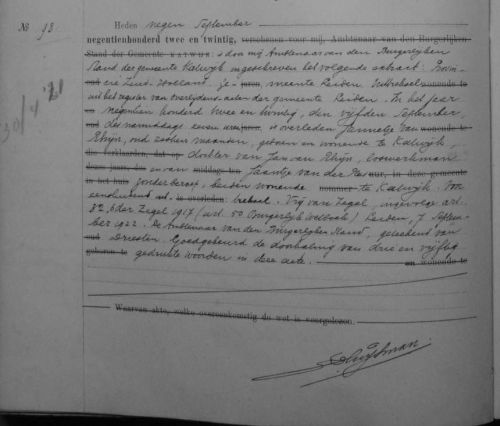 No 93.
Heden negen September
negentienhonderd twee en twintig, verschenen voor mij, Ambtenaar van den Burgerlijken
Stand der Gemeente KATWIJK is door mij Ambtenaar van den Burgerlijken
Stand der gemeente Katwijk ingeschreven het volgende extract: Provin
cie Zuid-Holland, gemeente Leiden. Uittreksel
uit het register van overlijdens-acten der gemeente Leiden. In het jaar
negentien honderd twee en twintig, den vijfden September
des namiddags uren, is overleden Jannetje van
Rhijn, oud maanden, geboren en wonende te Katwijk,
die verklaarden, dat op dochter van Jan van Rhijn, loswerkman
dezes jaars, des middags te en van Jaantje van der uur, in deze gemeente
in het huis zonder beroep, beiden wonende nommer te Katwijk. Voor
eensluidend is overleden Vrij van Zegel, ingevolge art.
82, 6der Zegel 1917 (art. 50 Burgerlijk Wetboek) Leiden, 7 Septem
ber 1922. De Ambtenaar van den Burgerlijken Stand, geteekend van
Driesten. Goedgekeurd de doorhaling van drie en vijftig
geboren te gedrukte woorden in deze acte. en wonende te
Waarvan akte, welke overeenkomstig de wet is voorgelezen.